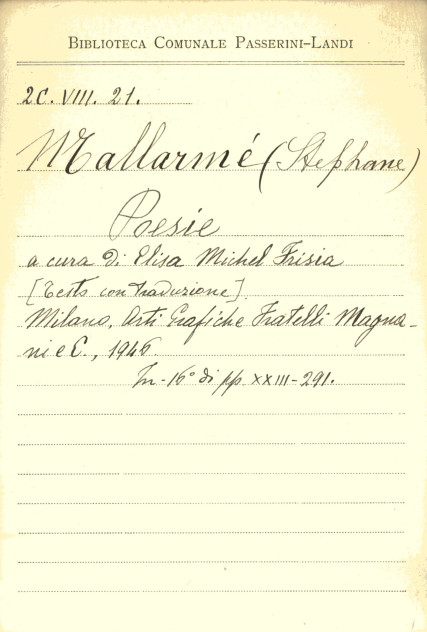 BIBLIOTECA COMUNALE PASSERINI-LANDI
2C. VIII. 21.
Mallarmé (Stephane)
Poesie
a cura di Elisa Michel Frisia
[Testo con traduzione].
Milano, Arti Grafiche Fratelli Magna-
ni e C., 1946.
In-16° di pp. XXIII-291.